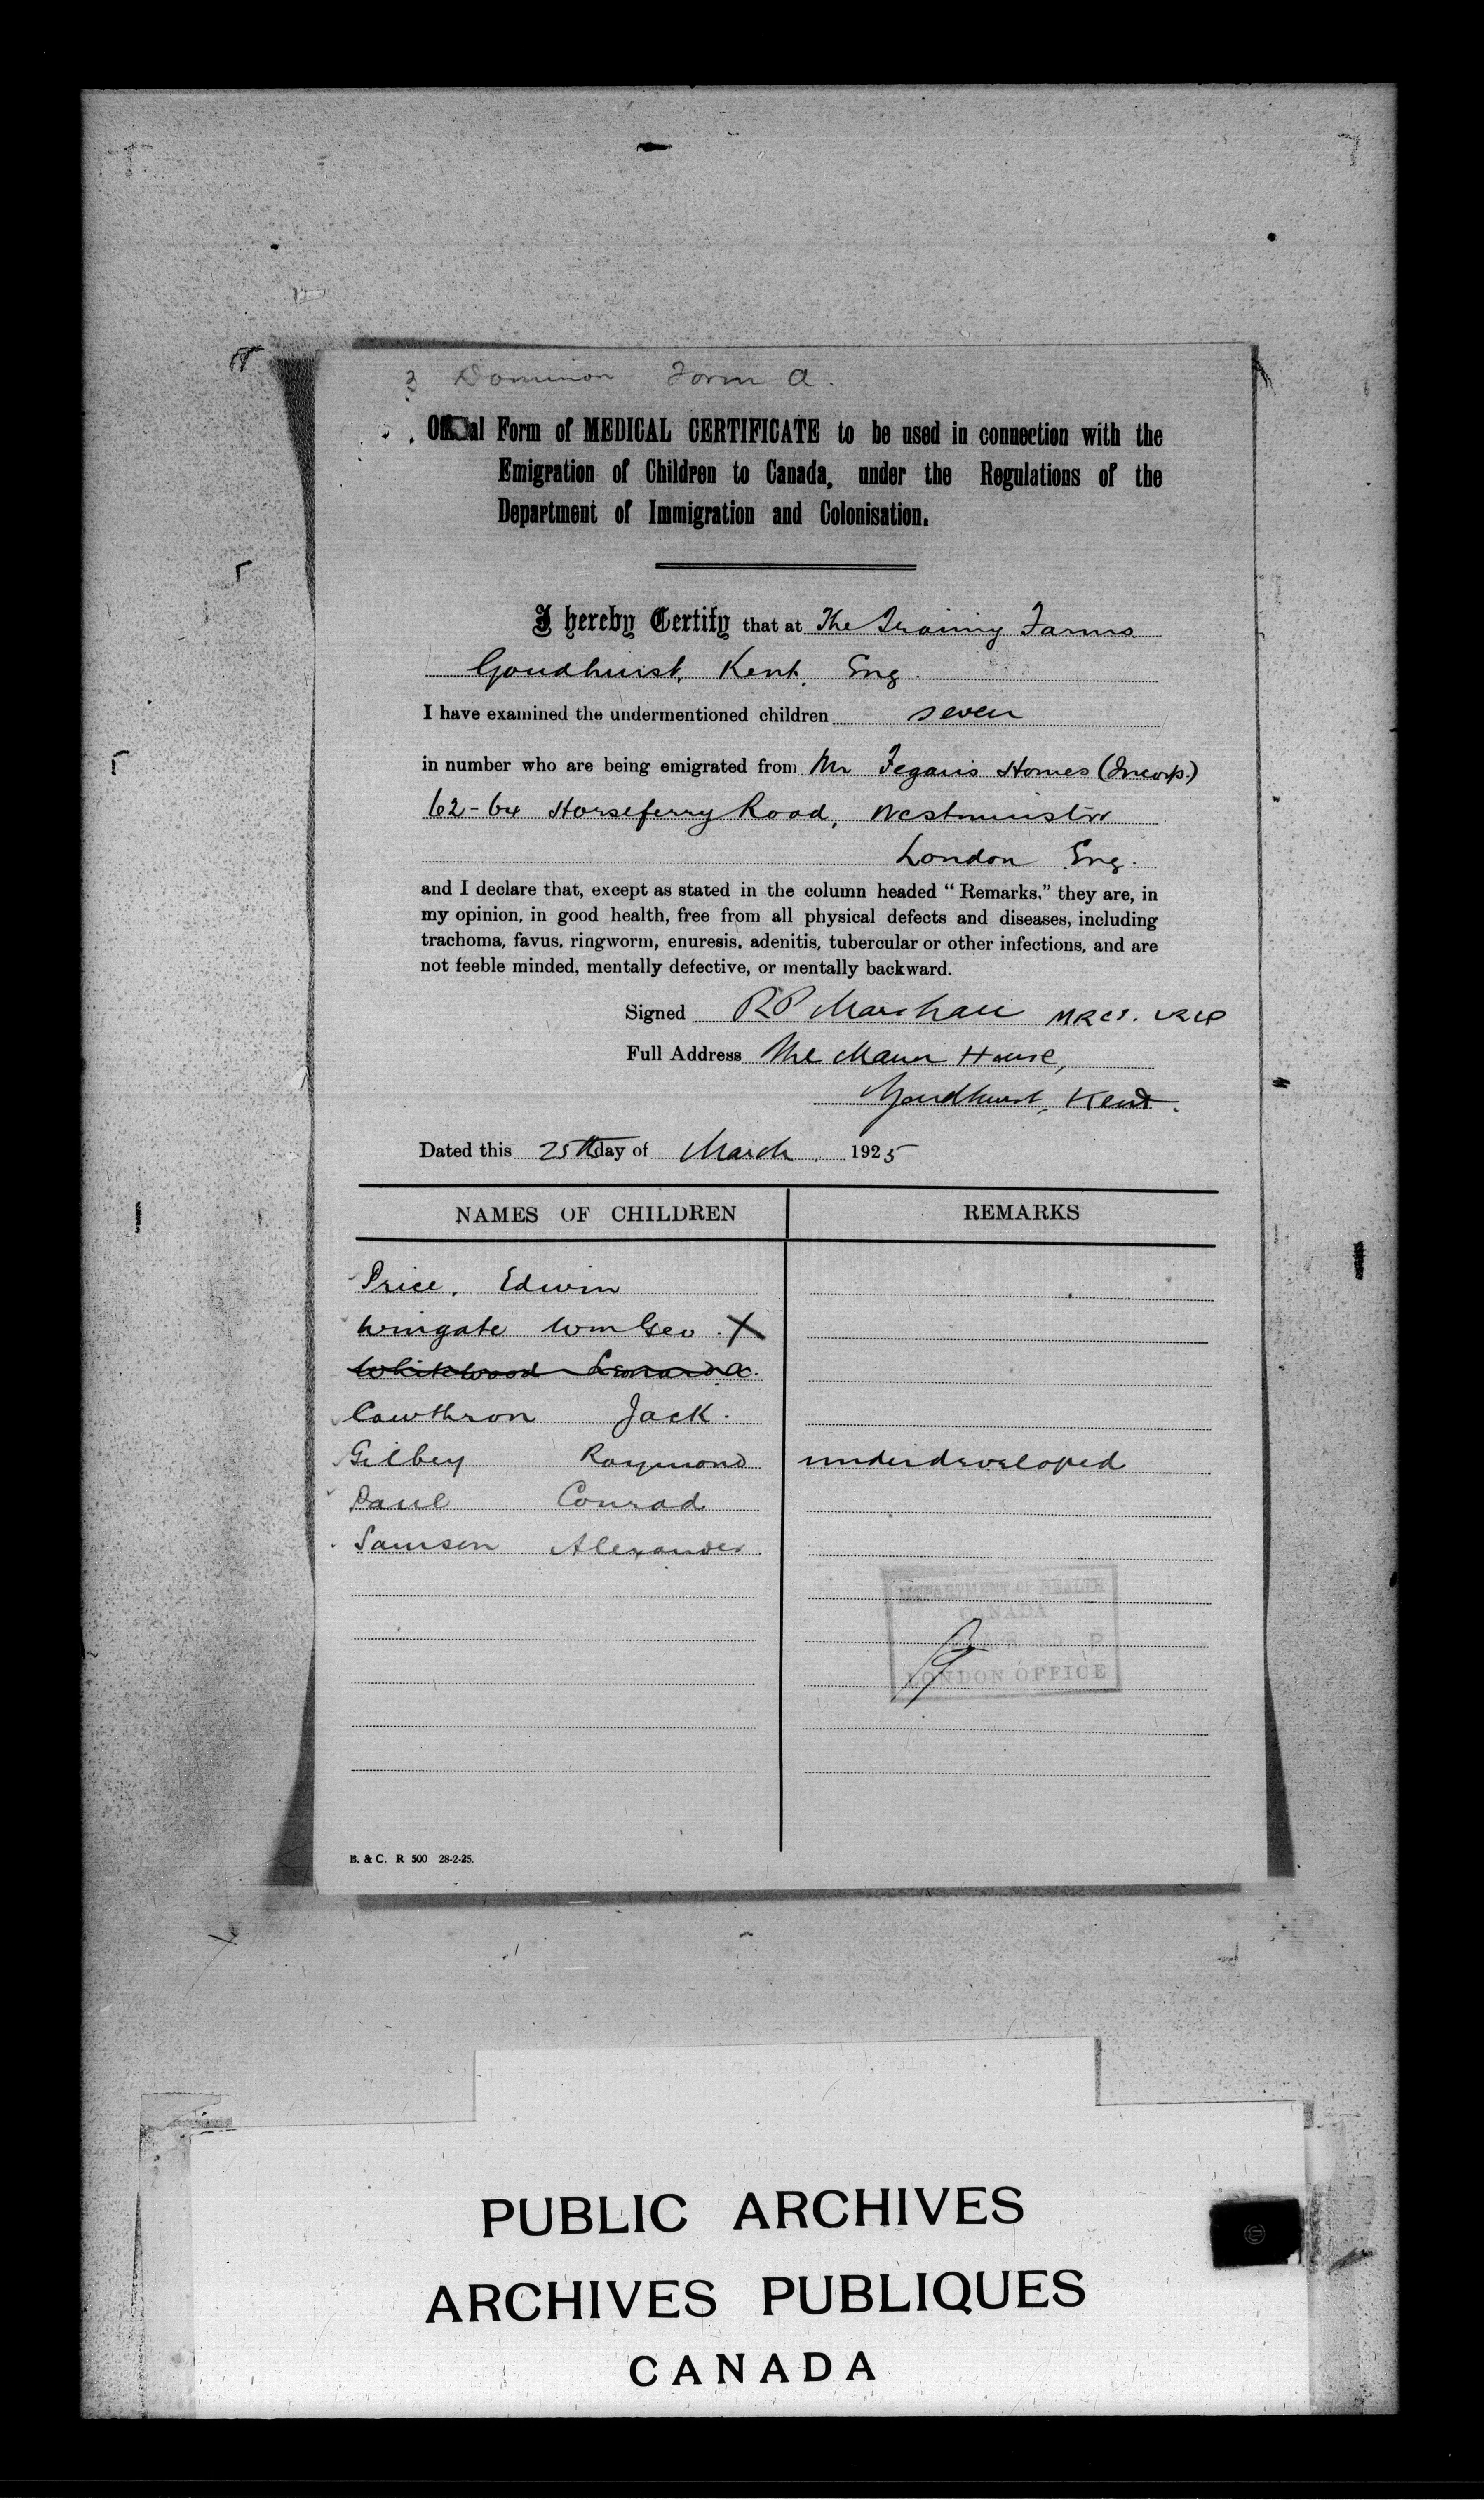 Dominion Form A.
Official Form of MEDICAL CERTIFICATE to be used in connection with the
Emigration of Children to Canada, under the Regulations of the
Department of Immigration and Colonisation.
I hereby Certify that at The Training Farms
Goudhurst, Kent, Eng.
I have examined the undermentioned children seven
in number who are being emigrated from Mr Fegans Homes (Incorp.)
62-64 Horseferry Road, Westminster
London Eng.
and I declare that, except as stated in the column headed "Remarks," they are, in
my opinion, in good health, free from all physical defects and diseases, including
trachoma, favus, ringworm, enuresis, adenitis, tubercular or other infections, and are
not feeble minded, mentally defective, or mentally backward.
Signed RP Marshall MRCS. LRCP
Full Address The Manor House,
Goudhurst, Kent.
Dated this 25th day of March. 1925
NAMES OF CHILDREN REMARKS
Price, Edwin
Wingate Wm Geo. X
Whitewood Leonard A.
Cawthron Jack.
Gilbey Raymond underdeveloped
Paul Conrad
Samson Alexander
DEPARTMENT OF HEALTH
CANADA
P
LONDON OFFICE
B. & C. R 500 28-2-25.
PUBLIC ARCHIVES
ARCHIVES PUBLIQUES
CANADA